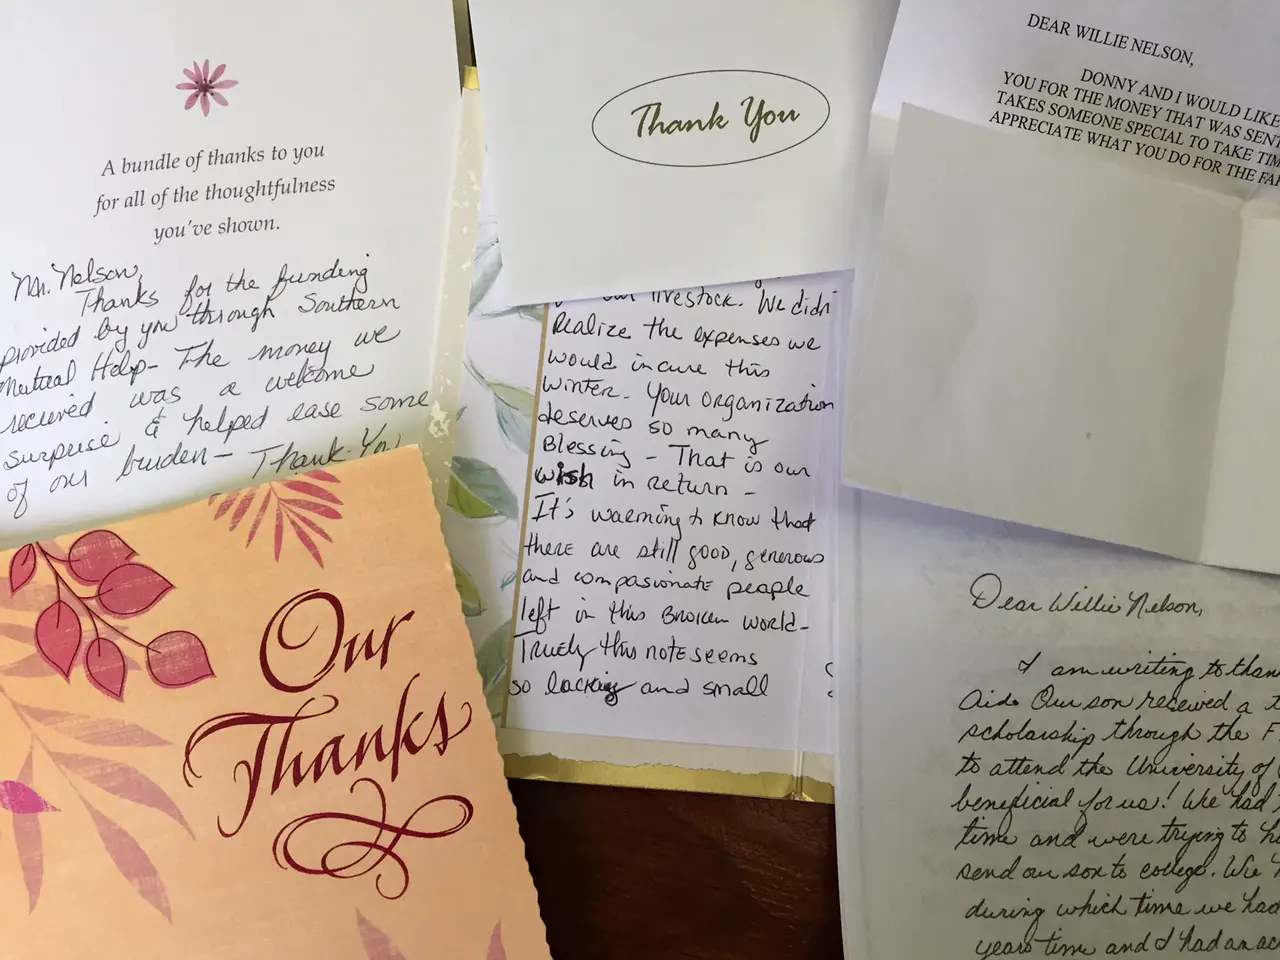 A bundle of thanks to you
for all of the thoughtfulness
you've shown.
Mr. Nelson,
Thanks for the funding
provided by you through Southern
Mutual Help- The money we
recieved was a welcome
surprise & helped ease some
of our burden- Thank-You
Our
Thanks
Thank You
our livestock. We didn
Realize the expenses we
would incure this
winter. Your organization
deserves so many
Blessing - That is our
wish in return -
It's warming to know that
there are still good, generous
and compasionate people
left in this Broken world-
Truely this note seems
so lacking and small
DEAR WILLIE NELSON,
DONNY AND I WOULD LIKE
YOU FOR THE MONEY THAT WAS SENT
TAKES SOMEONE SPECIAL TO TAKE TIM
APPRECIATE WHAT YOU DO FOR THE FA
Dear Willie Nelson,
I am writing to than
Aid. Our son received a
scholarship through the F
to attend the University of
beneficial for us! We had
time and were trying to
send our son to college. We
during which time we had
years time and I had an